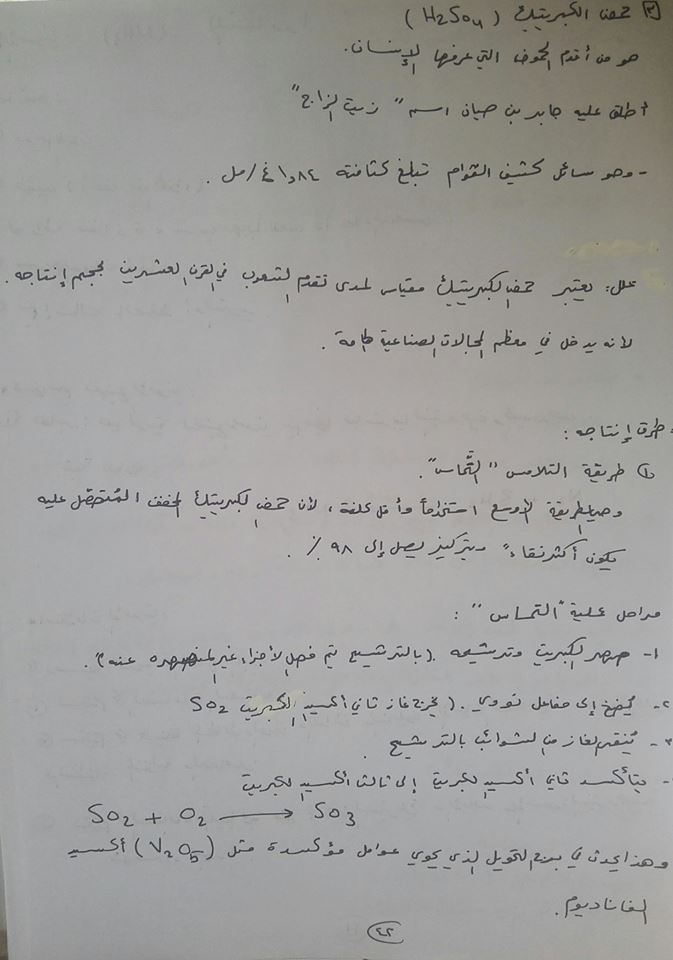 ٣) حمض الكبريتيك (H2SO4)
هو من أقدم الحموض التي عرفها الإنسان.
أطلق عليه جابر بن حيان اسم "زيت الزاج"
- وهو سائل كثيف القوام تبلغ كثافته ١,٨٤ غ/مل.
علل: يعتبر حمض الكبريتيك مقياس لمدى تقدم الشعوب في القرن العشرين لحجم إنتاجه.
لأنه يدخل في معظم المجالات الصناعية الهامة.
طرق إنتاجه:
١) طريقة التلامس "التَّماس".
وهي الطريقة الأوسع استخداماً وأقل كلفة، لأن حمض الكبريتيك المخفف المُتحصّل عليه
يكون أكثر نقاءً وبتركيز يصل إلى ٩٨٪.
مراحل عملية "التماس":
١- صهر الكبريت وترشيحه. (بالترشيح تم فصل الأجزاء غير المنصهره عنه).
٢- يُضخ إلى مفاعل نووي. (يخرج غاز ثاني أكسيد الكبريت SO2
٣- يُنقى الغاز من الشوائب بالترشيح.
- يتأكسد ثاني أكسيد الكبريت إلى ثالث أكسيد الكبريت
SO2 + O2 → SO3
وهذا يحدث في برج التحويل الذي يحوي عوامل مؤكسدة مثل (V2O5) أكسيد
الفاناديوم.
٢٢